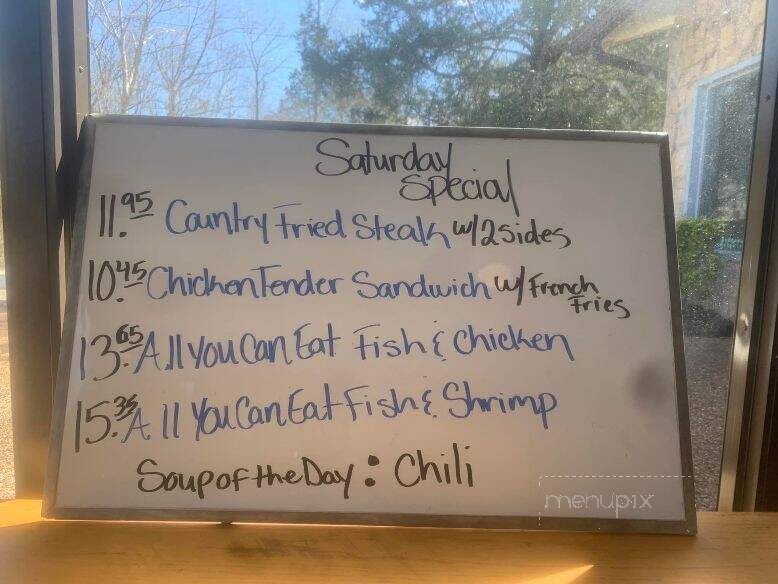 Saturday
Special
11.95 Country Fried Steak w/2 sides
10.45 Chicken Tender Sandwich w/ French
Fries
13.65 All you Can Eat Fish & Chicken
15.35 All You Can Eat Fish & Shrimp
Soup of the Day: Chili
menupix